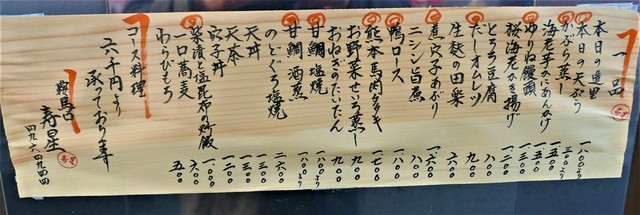 一品
本日の造里 一八〇〇より
本日の天ぷら 三〇〇より
かぶら蒸し 一五〇〇
海老芋かにあんかけ 一五〇〇
ゆりね饅頭 一五〇〇
桜海老かき揚げ 一二〇〇
とろろ豆腐 八〇〇
だしオムレツ 九〇〇
生麸の田楽 六〇〇
煮穴子あぶり 一六〇〇
ニシン旨煮 一〇〇〇
鴨ロース 一八〇〇
熊本馬肉タタキ 一七〇〇
お野菜せいろ蒸し 九〇〇
おねぎのたいたん 九〇〇
甘鯛塩焼 一八〇〇より
甘鯛酒蒸 一八〇〇より
のどぐろ塩焼 二六〇〇
天丼 一三〇〇
天本 一三〇〇
穴子丼 一二〇〇
菜漬と塩昆布の炒飯 一〇〇〇
一口蕎麦 六〇〇
わらびもち 五〇〇
コース料理
六千円より
承ております
鞍馬口
寿星
四九六-四九四四